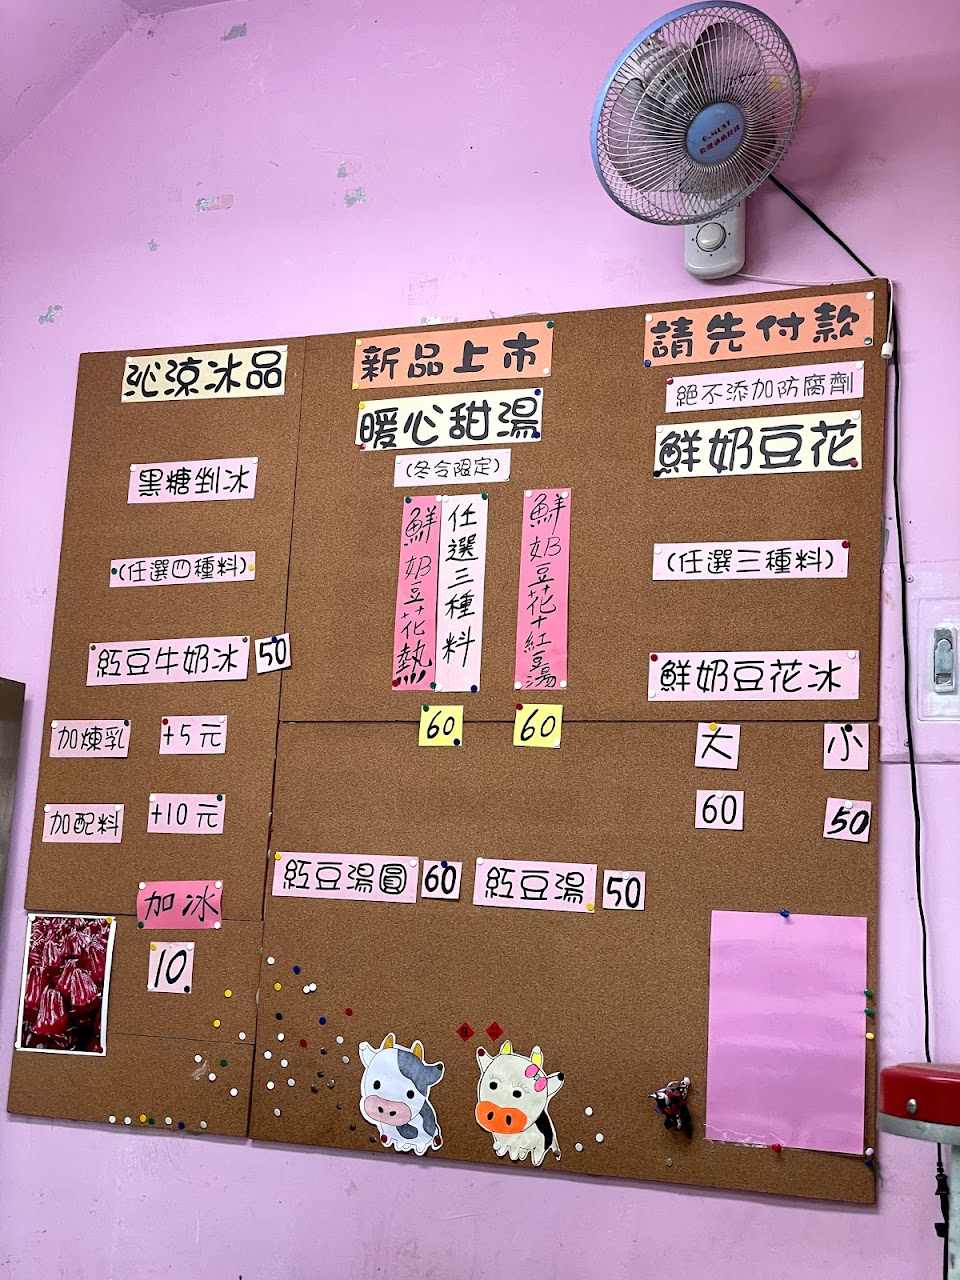 沁涼冰品
黑糖剉冰
(任選四種料)
紅豆牛奶冰 50
加煉乳 +5元
加配料 +10元
加冰
10
新品上市
暖心甜湯
(冬令限定)
鮮奶豆花熱
任選三種料
60
鮮奶豆花+紅豆湯
60
紅豆湯圓 60 紅豆湯 50
請先付款
絕不添加防腐劑
鮮奶豆花
(任選三種料)
鮮奶豆花冰
大 小
60 50